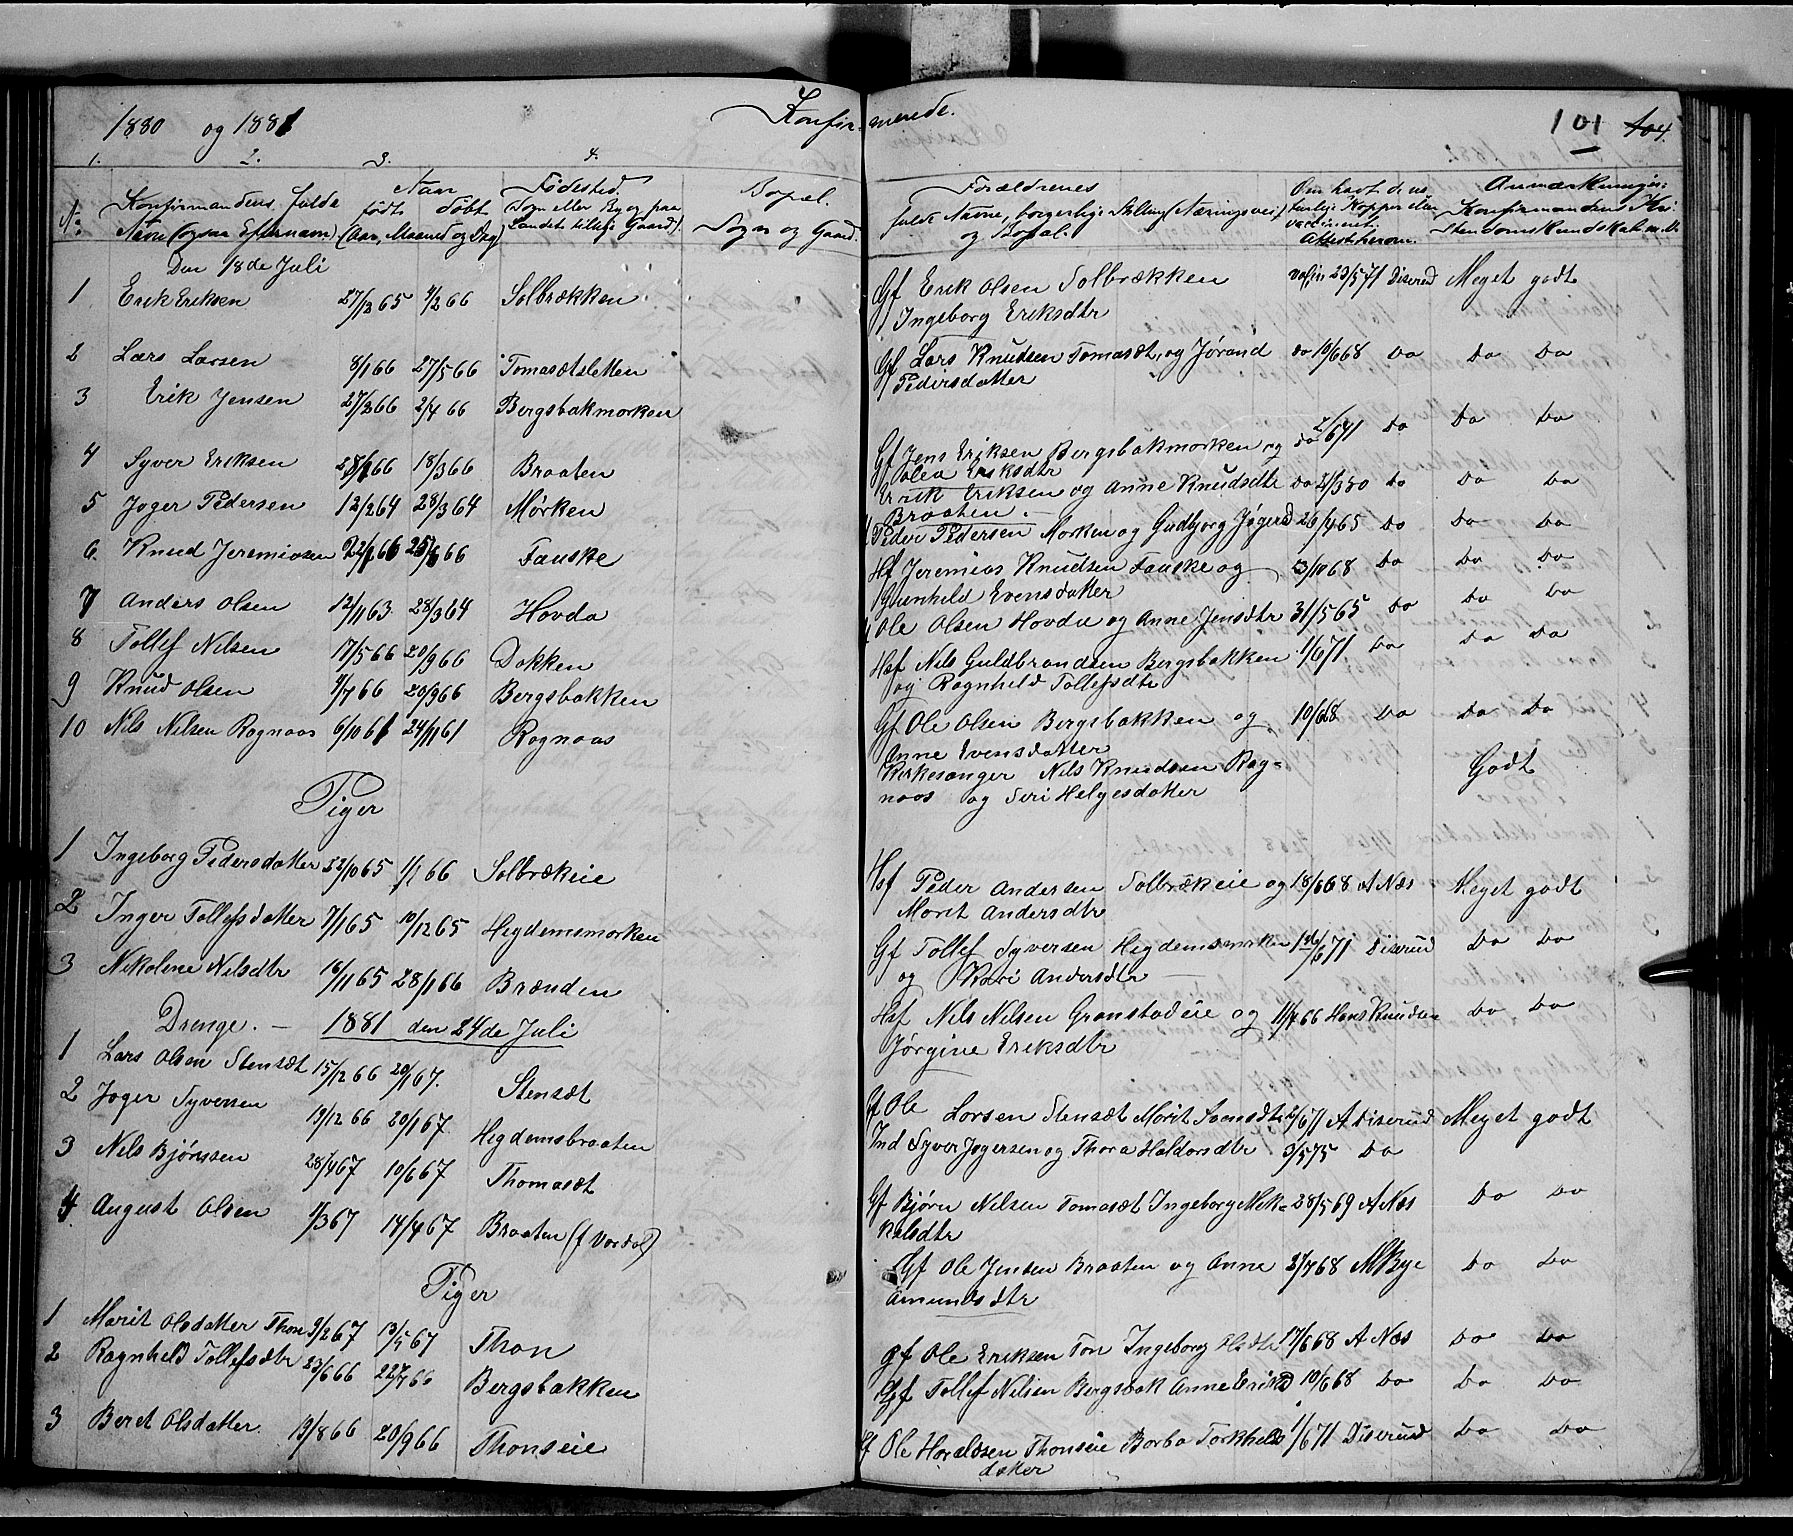 1880 og 1881 Konfirmerede. 101 104
1. 2. 3. 4.
No Konfirmandens fulde Navn (ogsaa Efternavn) Naar født døbt (Aar, Maaned og Dag) Fødested. Sogn eller By og paa Landet tillige Gaard). Bopæl. Sogn og Gaard.
Forældrenes fulde Navne, borgerlige Stilling (Næringsvei) og Bopæl. Om havt de naturlige Kopper eller vaccineret. Attest herom. Anmærkninger: Konfirmandens Kristendomskundskab m.v.
Den 18de Juli
1 Erik Eriksen 27/12 65 4/2 66 Solbrækken Gf Erik Olsen Solbrækken vaccin 23/5 71 Diserud Meget godt
Ingeborg Eriksdtr
2 Lars Larsen 8/1 66 27/5 66 Tomasætsletten Gf Lars Knudsen Tomasæt, og Jørand do 19/6 68 Do Do Do
Pedersdatter
3 Erik Jensen 27/2 66 2/4 66 Bergsbakmorken Gf Jens Eriksen Bergsbakmorken og do 1/6 71 do Do Do
Olea Eriksdtr
4 Syver Eriksen 28/1 66 18/3 66 Braaten Erik Eriksen og Anne Knudsdtr do 21/3 80 do Do Do
Braaten.
5 Joger Pedersen 12/2 64 28/3 64 Mørken Peder Pedersen Morken og Gudbjørg Jøgersd 26/4 65 Do Do Do
6. Knud Jeremiasen 22/1 66 25/ 66 Fauske Hf Jeremias Knudsen Fauske og 3/10 68 Do Do Do
Gunhild Evensdatter
7 Anders Olsen 12/11 63 28/3 64 Hovda Ole Olsen Hovda og Anne Jensdtr 31/5 65 Do Do Do
8 Tollef Nilsen 17/5 66 20/9 66 Dokken Hsf Nils Guldbrandsen Bergsbakken 1/6 71 Do Do Do
og Ragnhild Tollefsdtr
9 Knud Olsen 9/7 66 20/9 66 Bergsbakken Gf Ole Olsen Bergsbakken og 19/6 68 Do Do Do
Anne Evensdatter
10 Nils Nilsen Rognaas 6/10 61 24/11 61 Rognaas Kirkesanger Nils Knudsen Rog= Godt
naas og Siri Helgesdatter
Piger
1 Ingeborg Pedersdatter 22/10 65 1/1 66 Solbrækeie Hsf Peder Andersen Solbrækeie og 18/6 68 A Næs Meget godt
Marit Andersdtr
2 Inger Tollefsdatter 7/11 65 10/12 65 Hegdemsmorken Gf Tollef Syversen Hegdemsmorken 1/6 71 Diserud Do Do
og Kari Andersdtr
3 Nikoline Nilsdtr 16/11 65 28/1 66 Brænden Hsf Nils Nilsen Granstadeie og 11/7 66 Hans Knudsen Do Do
Jørgine Eriksdtr
Drenge. 1881 den 24de Juli
1 Lars Olsen Stensæt 15/12 66 20/1 67. Stensæt Gf Ole Larsen Stensæt Marit Svensdtr 2/6 71 A Diserud Meget godt
2 Joger Syversen 19/12 66 20/1 67 Hegdemsbraaten Ind Syver Jogersen og Thora Haldorsdtr 3/5 75 Do
3 Nils Bjørnsen 28/4 67 10/6 67 Thomasæt Gf Bjørn Nilsen Tomasæt Ingeborg Mik= 28/5 69 A Næs Do Do
kelsdtr
4 August Olsen 1/3 67 14/4 67 Braaten (f Vardal) Gf Ole Jensen Braaten og Anne 2/7 68 M Bye Do Do
Amundsdtr
Piger
1 Marit Olsdatter Thon 9/2 67 13/4 67 Thon Gf Ole Eriksen Ton Ingeborg 17/6 68 A Næs Do Do
2 Ragnhild Tollefsdtr 23/6 66 22/7 66 Bergsbakken Gf Tollef Nilsen Bergsbak Anne Eriksd 19/6 68 Do Do Do
3 Beret Olsdatter 19/8 66 20/9 66 Thonseie Ole Haraldsen Thonseie Barbo Torkhels 1/6 71 Diserud Do Do
datter